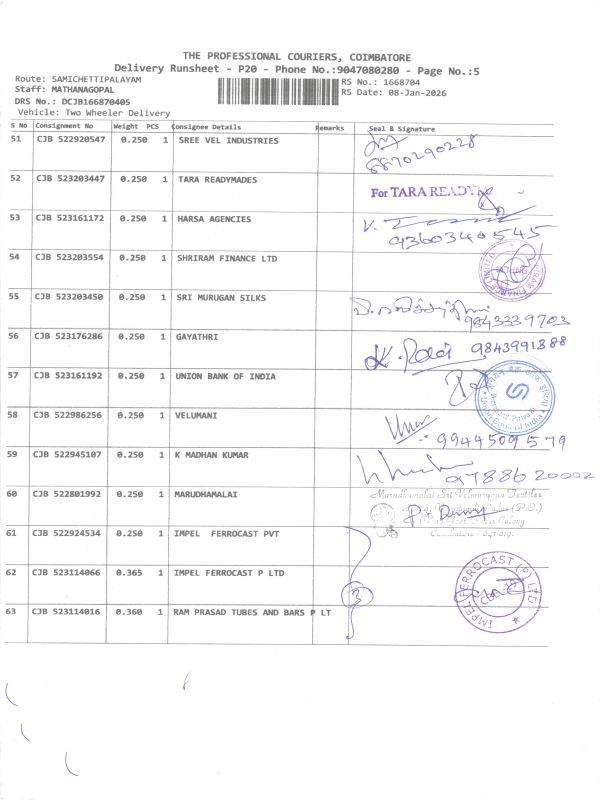 THE PROFESSIONAL COURIERS, COIMBATORE
Delivery Runsheet - P20 - Phone No.:9047080280 - Page No.:5
Route: SAMICHETTIPALAYAM
Staff: MATHANAGOPAL
DRS No.: DCJB166870405
Vehicle: Two Wheeler Delivery
RS No.: 1668704
RS Date: 08-Jan-2026
S No Consignment No Weight PCS Consignee Details Remarks Seal & Signature
51 CJB 522920547 0.250 1 SREE VEL INDUSTRIES
8870290228
52 CJB 523203447 0.250 1 TARA READYMADES
For TARA READY
53 CJB 523161172 0.250 1 HARSA AGENCIES
9360340545
54 CJB 523203554 0.250 1 SHRIRAM FINANCE LTD
55 CJB 523203450 0.250 1 SRI MURUGAN SILKS
9843339703
56 CJB 523176286 0.250 1 GAYATHRI
9843991388
57 CJB 523161192 0.250 1 UNION BANK OF INDIA
Union Bank of India
58 CJB 522986256 0.250 1 VELUMANI
9944509579
59 CJB 522945107 0.250 1 K MADHAN KUMAR
9788620002
60 CJB 522801992 0.250 1 MARUDHAMALAI
Marudhamalai Sri Velmurugan Textiles
(P.O.)
Colony
Coimbatore - 641 019.
61 CJB 522924534 0.250 1 IMPEL FERROCAST PVT
62 CJB 523114066 0.365 1 IMPEL FERROCAST P LTD
3
IMPEL FERROCAST (P) LTD
63 CJB 523114016 0.360 1 RAM PRASAD TUBES AND BARS P LT